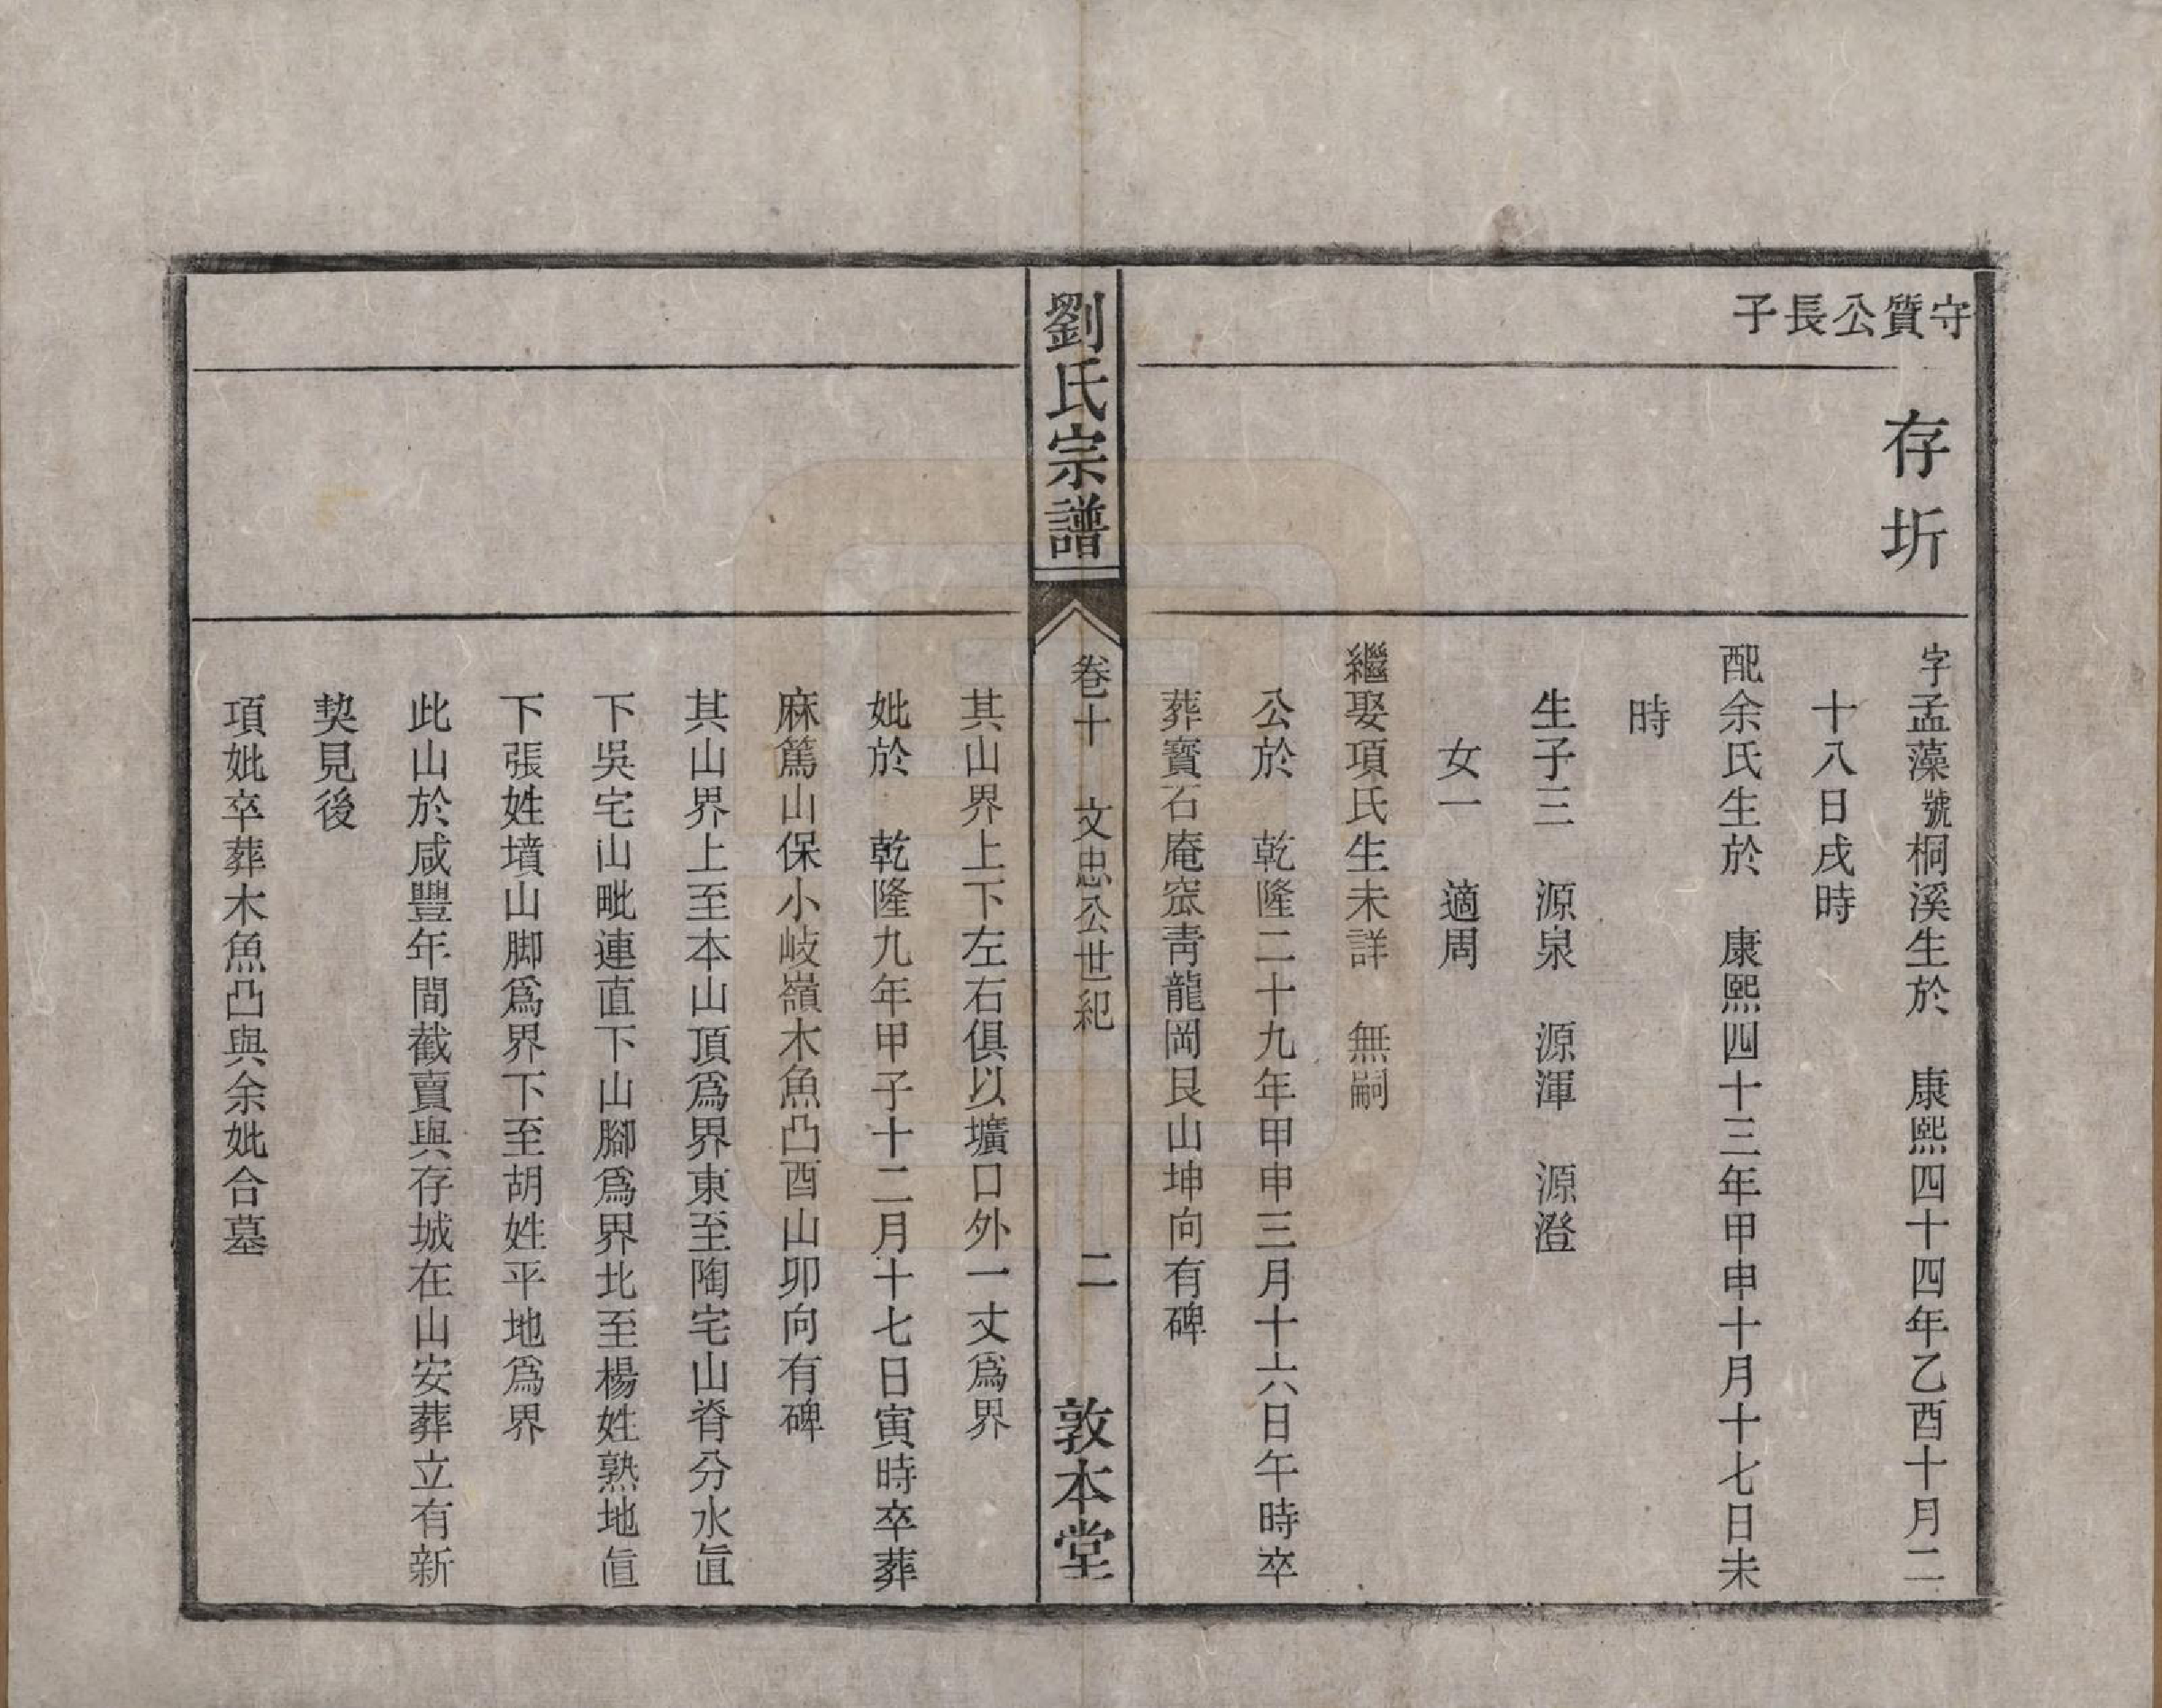 守質公長子
存圻
字孟藻號桐溪生於　康熙四十四年乙酉十月二
十八日戌時
配余氏生於　康熙四十三年甲申十月十七日未
時
生子三　源泉　源渾　源澄
女一　適周
繼娶項氏生未詳　無嗣
公於　乾隆二十九年甲申三月十六日午時卒
葬寶石庵窊青龍岡艮山坤向有碑
劉氏宗譜
卷十　文忠公世紀
二
敦本堂
其山界上下左右俱以壙口外一丈爲界
妣於　乾隆九年甲子十二月十七日寅時卒葬
麻篤山保小岐嶺木魚凸酉山卯向有碑
其山界上至本山頂爲界東至陶宅山脊分水直
下吳宅山毗連直下山腳爲界北至楊姓熟地直
下張姓墳山脚爲界下至胡姓平地爲界
此山於咸豐年間截賣與存城在山安葬立有新
契見後
項妣卒葬木魚凸與余妣合墓